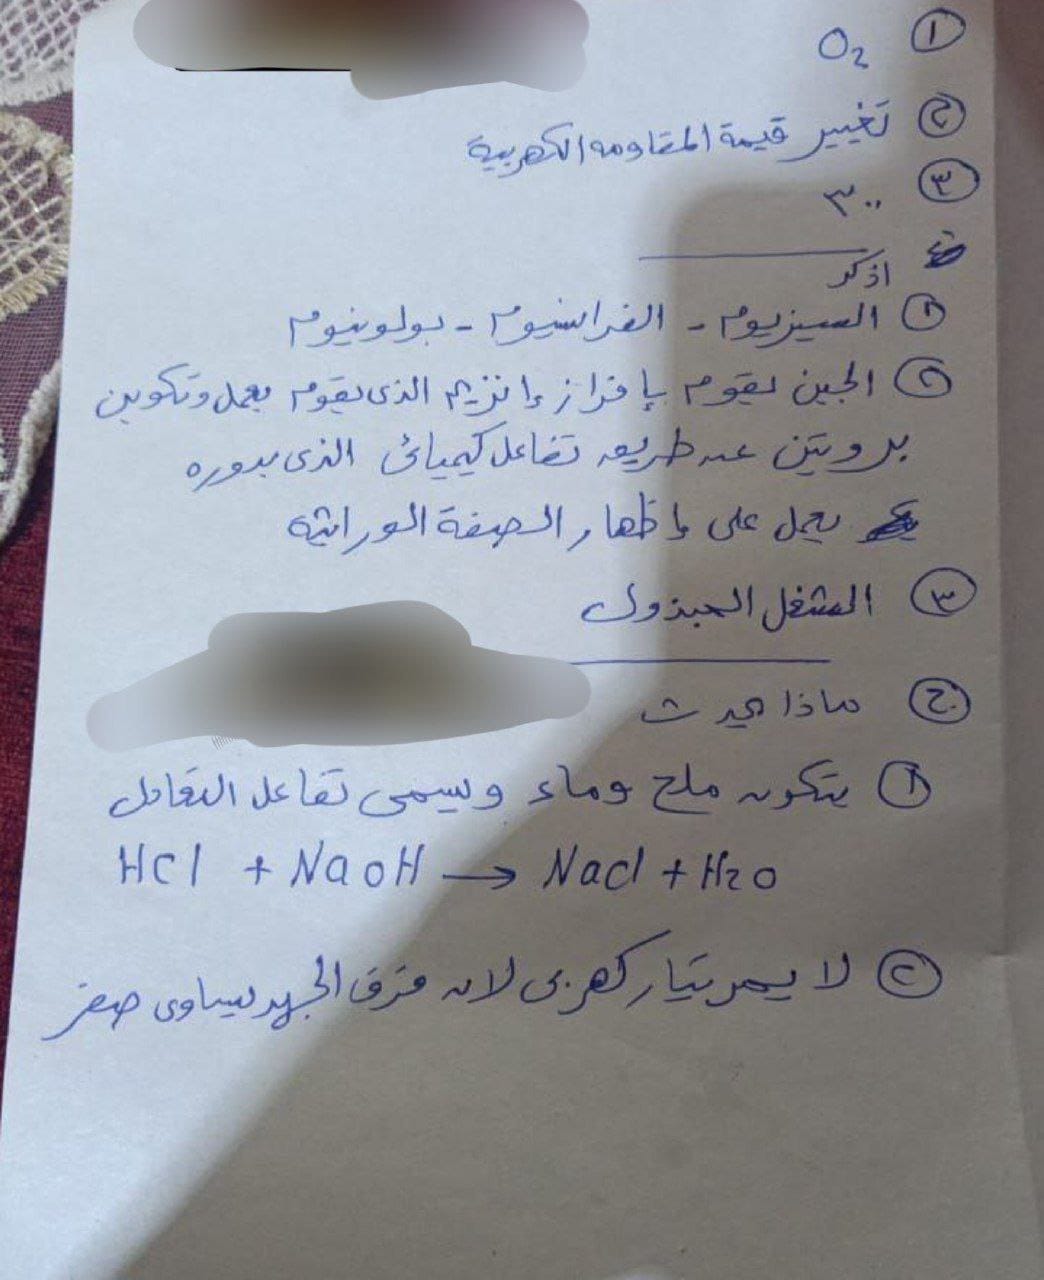 ١ O2
٢ تغيير قيمة المقاومه الكهربية
٣ ٣٠٠
اذكر
١ السيزيوم - الفرانسيوم - بولونيوم
٢ الجين يقوم بإفراز إنزيم الذى يقوم بعمل وتكوين
بروتين عن طريق تفاعل كيميائى الذى بدوره
يعمل على إظهار الصفة الوراثية
٣ المشغل الحبذول
ج ماذا يحدث
١ يتكون ملح وماء ويسمى تفاعل التعادل
HCl + NaOH → NaCl + H2O
٢ لا يمر تيار كهربى لان فرق الجهد يساوى صفر